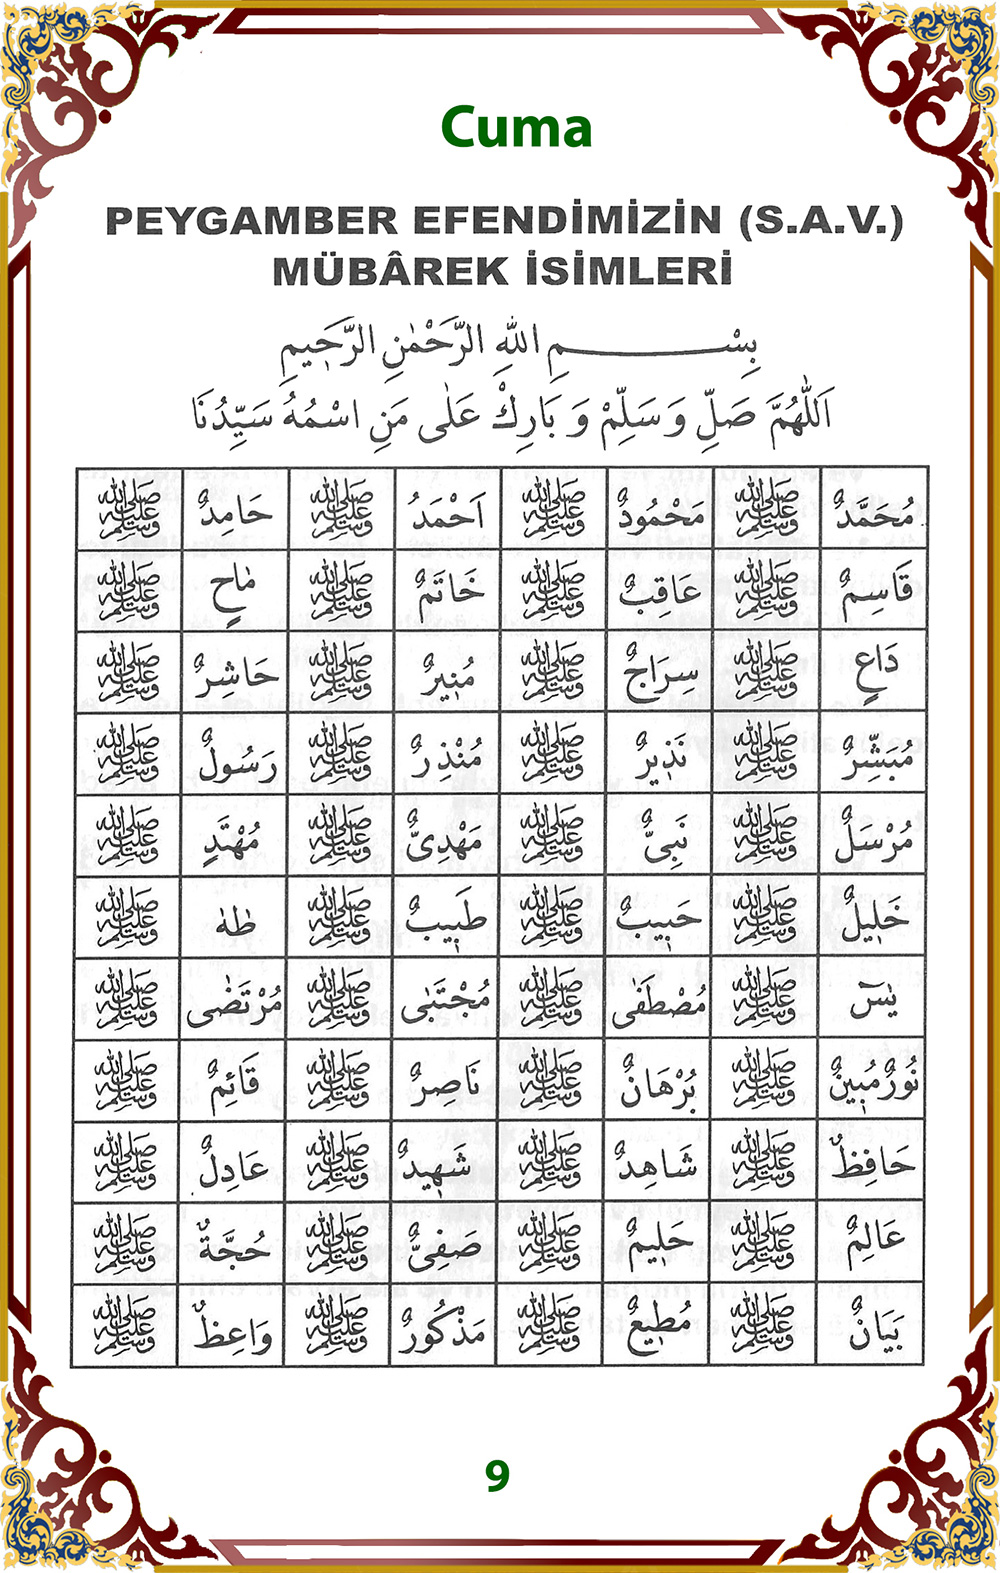 Cuma
PEYGAMBER EFENDİMİZİN (S.A.V.)
MÜBÂREK İSİMLERİ
بِسْمِ اللهِ الرَّحْمٰنِ الرَّحِيمِ
اَللّٰهُمَّ صَلِّ وَسَلِّمْ وَبَارِكْ عَلٰى مَنِ اسْمُهُ سَيِّدُنَا
مُحَمَّدٌ ﷺ مَحْمُودٌ ﷺ اَحْمَدُ ﷺ حَامِدٌ ﷺ
قَاسِمٌ ﷺ عَاقِبٌ ﷺ خَاتَمٌ ﷺ مَاحٍ ﷺ
دَاعٍ ﷺ سِرَاجٌ ﷺ مُنِيرٌ ﷺ حَاشِرٌ ﷺ
مُبَشِّرٌ ﷺ نَذِيرٌ ﷺ مُنْذِرٌ ﷺ رَسُولٌ ﷺ
مُرْسَلٌ ﷺ نَبِىٌّ ﷺ مَهْدِىٌّ ﷺ مُهْتَدٍ ﷺ
خَلِيلٌ ﷺ حَبِيبٌ ﷺ طَبِيبٌ ﷺ طٰهٰ ﷺ
يٰسٓ ﷺ مُصْطَفٰى ﷺ مُجْتَبٰى ﷺ مُرْتَضٰى ﷺ
نُورٌ مُبِينٌ ﷺ بُرْهَانٌ ﷺ نَاصِرٌ ﷺ قَائِمٌ ﷺ
حَافِظٌ ﷺ شَاهِدٌ ﷺ شَهِيدٌ ﷺ عَادِلٌ ﷺ
عَالِمٌ ﷺ حَلِيمٌ ﷺ صَفِىٌّ ﷺ حُجَّةٌ ﷺ
بَيَانٌ ﷺ مُطِيعٌ ﷺ مَذْكُورٌ ﷺ وَاعِظٌ ﷺ
9